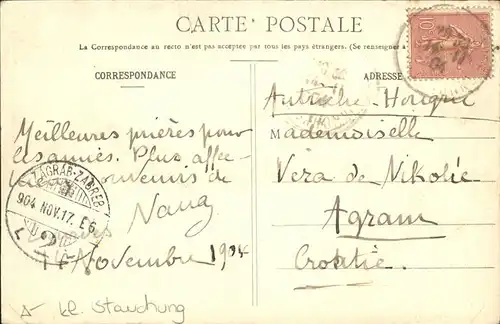 CARTE POSTALE
La Correspondance au recto n'est pas acceptée par tous les pays étrangers. (Se renseigner
CORRESPONDANCE
ADRESSE
Meilleures prières pour
les amies. Plus affec-
souvenirs de
Nang
14 Novembre 1904
ZAGRAB-ZAGREB
904 NOV. 17. E6
Autriche-Hongrie
Mademoiselle
Vera de Nikolić
Agram
Croatie.
kl. Stauchung